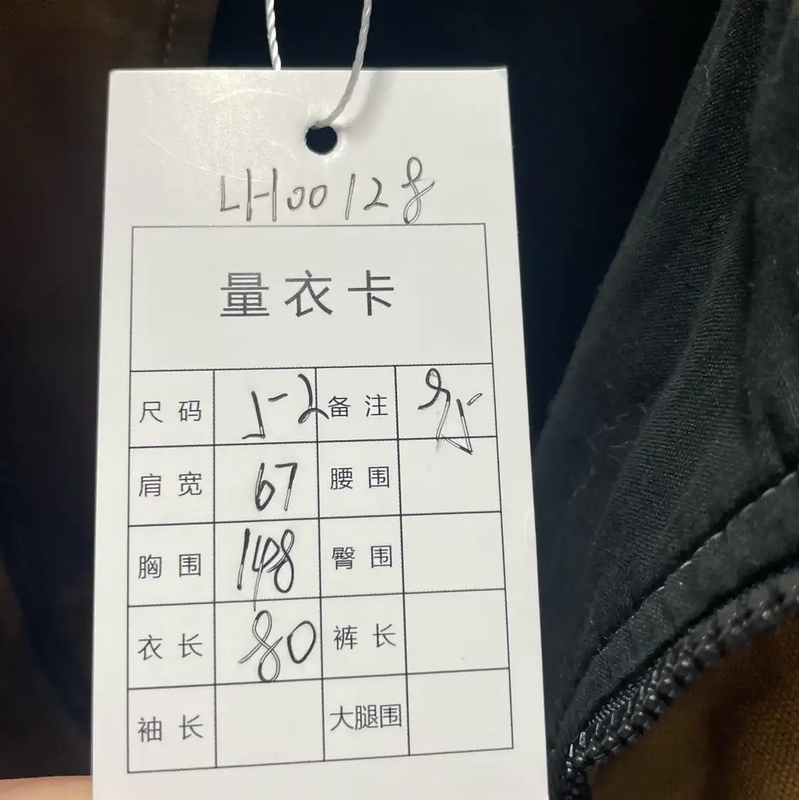 LH00128
量衣卡
尺码 52 备注 95
肩宽 67 腰围
胸围 148 臀围
衣长 80 裤长
袖长 大腿围